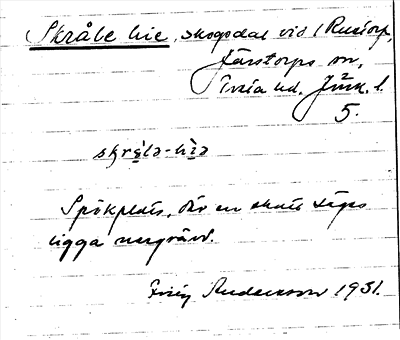 Skråle hie, skogsdal vid Rustorp,
Färstorps sn,
Tveta hd. Jönk. l.
5.
skrålə-hìə
Spökplats, där en skatt säges
ligga nergrävd.
Andersson 1931.